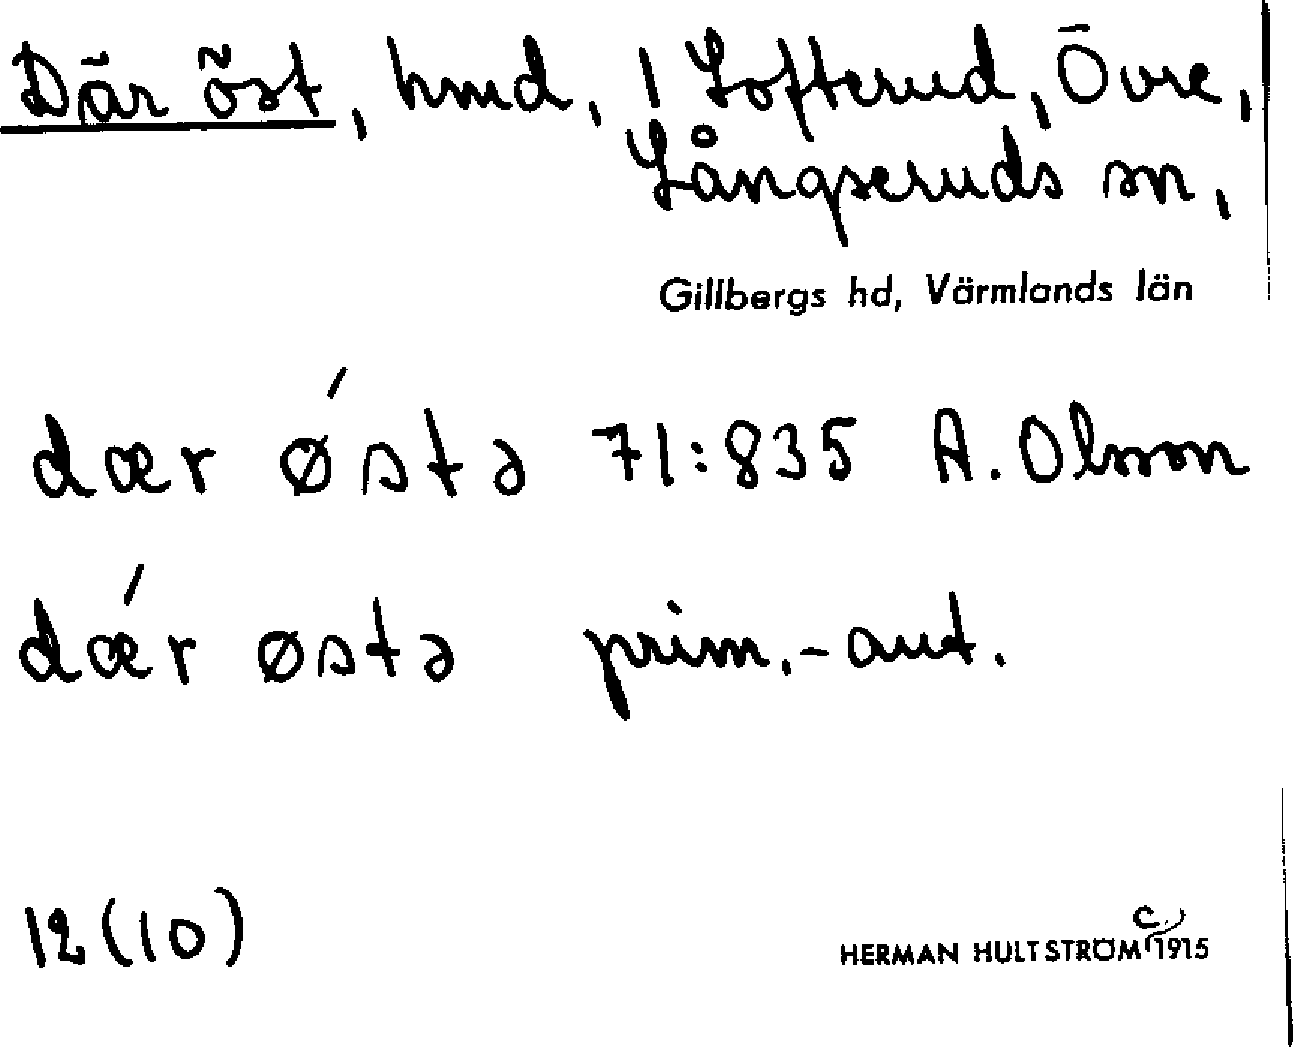 Där öst, hmd, 1 Lofterud, Övre,
Långseruds sn,
Gillbergs hd, Värmlands län
dær ǿstə 71:835 A. Olsson
dǽr østə prim.-aut.
12(10)
HERMAN HULTSTRÖM c. 1915